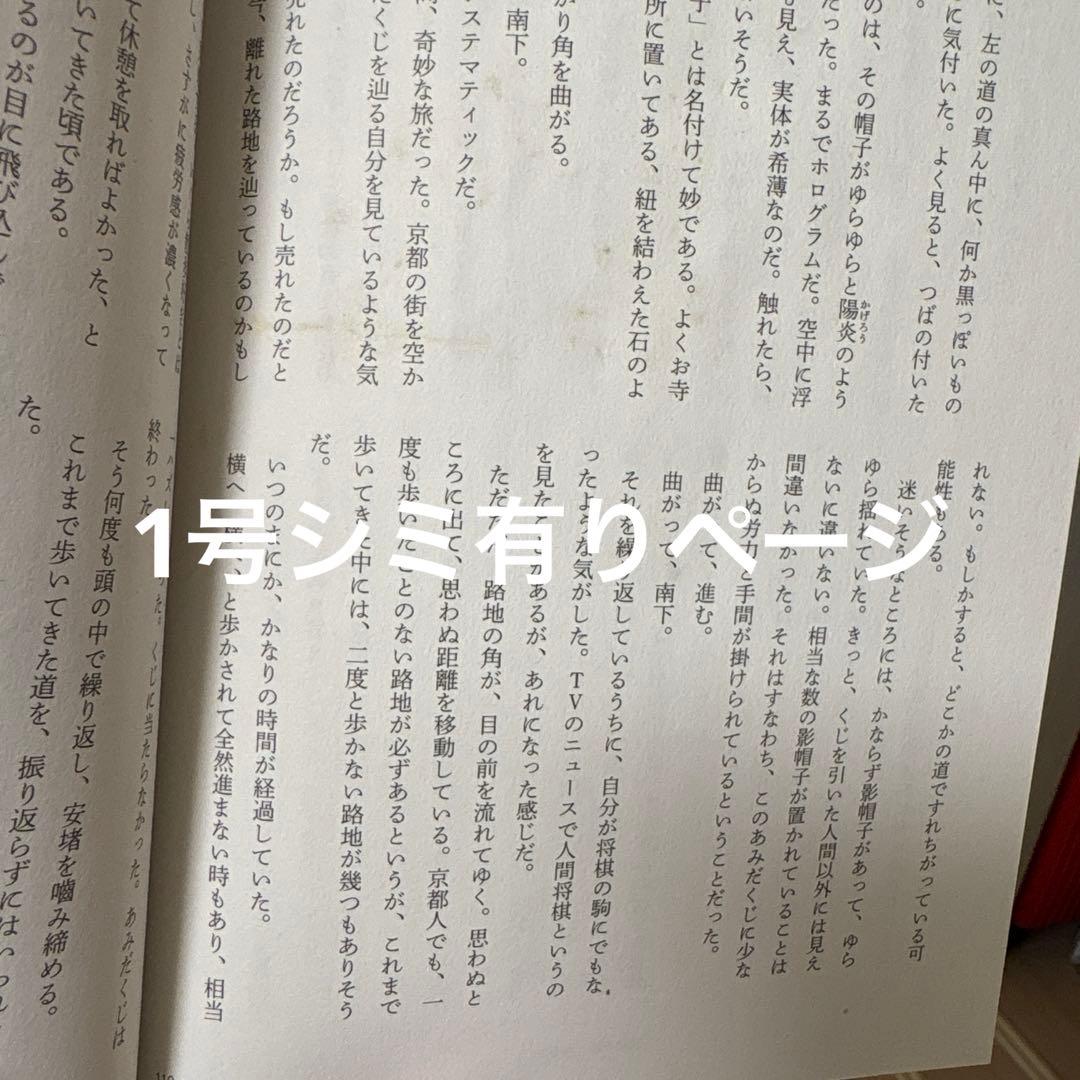 に、左の道の真ん中に、何か黒っぽいもの
に気付いた。よく見ると、つばの付いた
のは、その帽子がゆらゆらと陽炎のよう
かげろう
だった。まるでホログラムだ。空中に浮
も見え、実体が希薄なのだ。触れたら、
いそうだ。
子」とは名付けて妙である。よくお寺
所に置いてある、紐を結わえた石のよ
がり角を曲がる。
南下。
ステマティックだ。
奇妙な旅だった。京都の街を空か
たくじを辿る自分を見ているような気
売れたのだろうか。もし売れたのだと
、離れた路地を辿っているのかもし
れない。もしかすると、どこかの道ですれちがっている可
能性もある。
迷いそうなところには、かならず影帽子があって、ゆら
ゆら揺れていた。きっと、くじを引いた人間以外には見え
ないに違いない。相当な数の影帽子が置かれていることは
間違いなかった。それはすなわち、このあみだくじに少な
からぬ労力と手間が掛けられているということだった。
曲がって、進む。
曲がって、南下。
それを繰り返しているうちに、自分が将棋の駒にでもな
ったような気がした。TVのニュースで人間将棋というの
を見たことがあるが、あれになった感じだ。
ただただ、路地の角が、目の前を流れてゆく。思わぬと
ころに出て、思わぬ距離を移動している。京都人でも、一
度も歩いたことのない路地が必ずあるというが、これまで
歩いてきた中には、二度と歩かない路地が幾つもありそう
だ。
いつのまにか、かなりの時間が経過していた。
横へ横へと歩かされて全然進まない時もあり、相当
さすがに疲労感が濃くなって
て休憩を取ればよかった、と
いてきた頃である。
るのが目に飛び込
た。くじに当たらなかった。あみだくじは
終わった
そう何度も頭の中で繰り返し、安堵を嚙み締める。
これまで歩いてきた道を、振り返らずにはいられ
た。
1号シミ有りページ